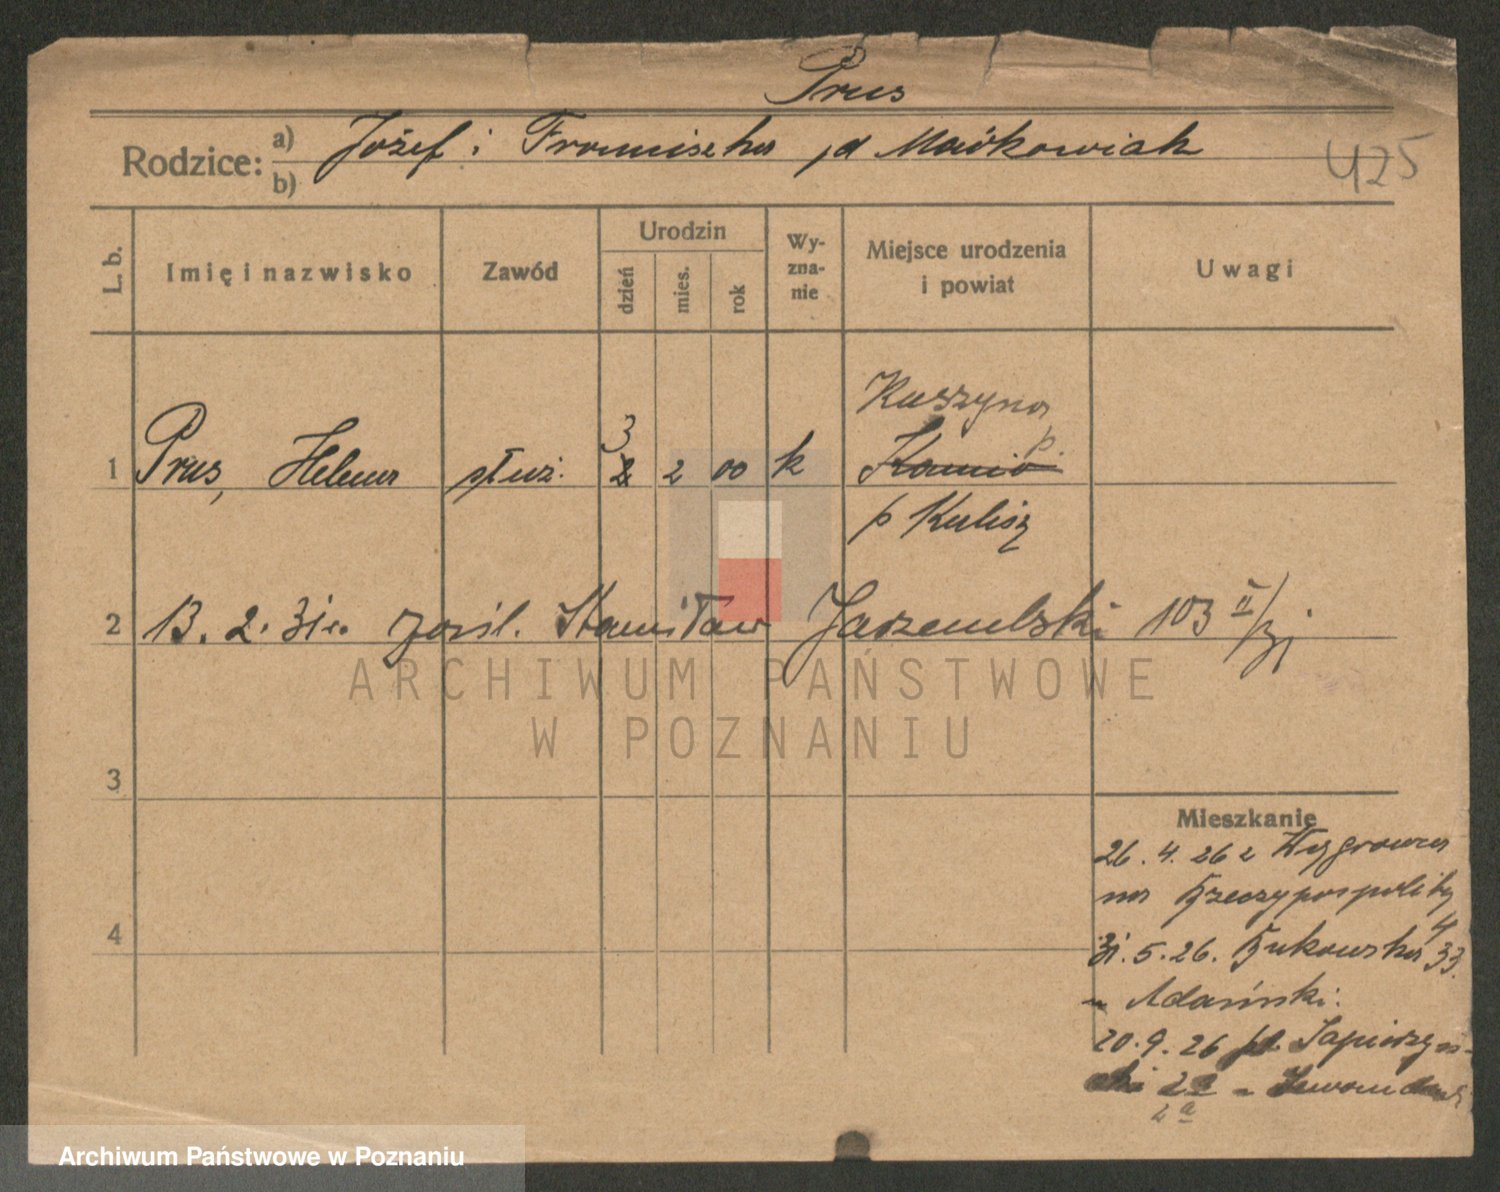 Prus
Rodzice: a) b) Józef i Franciszka d Maćkowiak
425
L. b. Imię i nazwisko Zawód Urodzin dzień mies. rok Wyznanie Miejsce urodzenia i powiat Uwagi
Kuszyna
p.
1 Prus, Helena służ. 3 2 00 k
p Kalisz
2 13. 2. 31 r. zaśl. Stanisław Jarzembski 103 II/31
ARCHIWUM PAŃSTWOWE
W POZNANIU
3
Mieszkanie
26. 4. 26 z Wągrowca
na Rzeczypospolitej
4
4
31. 5. 26. Bukowska 33.
Adamski.
20. 9. 26 pl. Sapieżyń-
ski 2a
2a
Archiwum Państwowe w Poznaniu